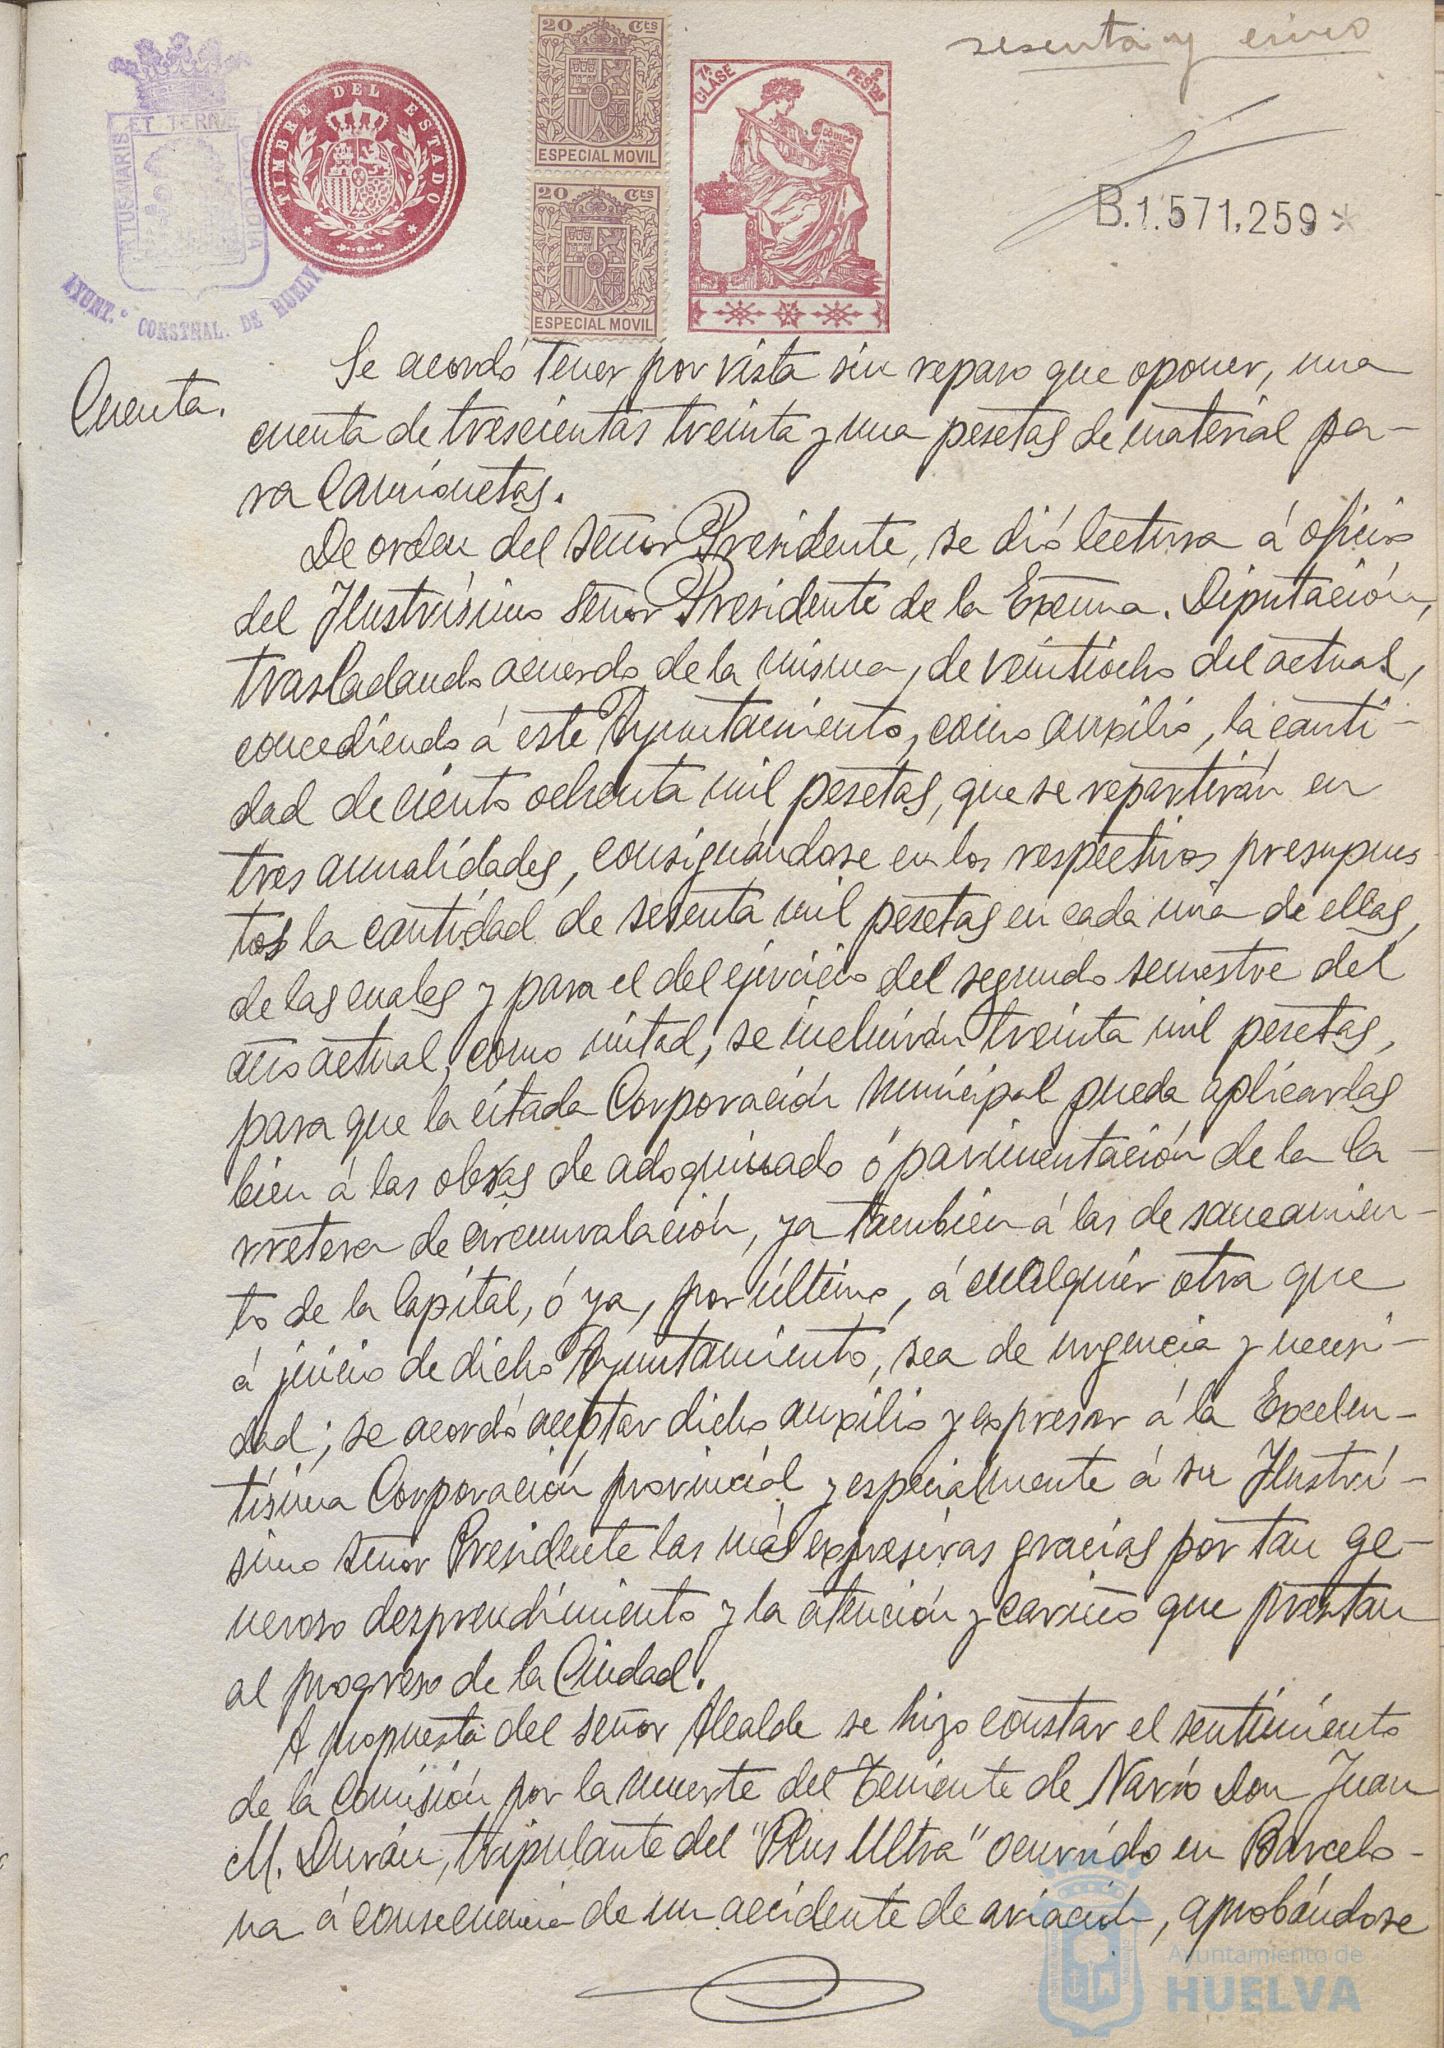 sesenta y cinco
20 Cts
ESPECIAL MOVIL
20 Cts
ESPECIAL MOVIL
TIMBRE DEL ESTADO
7ª CLASE
2 PESTAS
CÓDIGO
ET TERRÆ
TUS MARIS
CUSTODIA
AYUNT.º CONSTNAL. DE HUELVA
B.1.571.259*
Cuenta.
Se acordó tener por vista sin reparo que oponer, una
cuenta de trescientas treinta y una pesetas de material pa-
ra Camionetas.
De orden del señor Presidente, se dió lectura á oficio
del Ilustrísimo Señor Presidente de la Excma. Diputación,
trasladando acuerdo de la misma, de veintiocho del actual,
concediendo á este Ayuntamiento, como auxilio, la canti-
dad de ciento ochenta mil pesetas, que se repartirán en
tres anualidades, consignándose en los respectivos presupues
tos la cantidad de sesenta mil pesetas en cada una de ellas,
de las cuales y para el del ejercicio del segundo semestre del
año actual, como mitad, se incluirán treinta mil pesetas,
para que la citada Corporación Municipal pueda aplicarlas
bien á las obras de adoquinado ó pavimentación de la Ca-
rretera de circunvalación, ya también á las de saneamien-
to de la Capital, ó ya, por último, á cualquier otra que
á juicio de dicho Ayuntamiento, sea de urgencia y necesi-
dad; se acordó aceptar dicho auxilio y expresar á la Excelen-
tísima Corporación provincial y especialmente á su Ilustrí-
simo señor Presidente las más expresivas gracias por tan ge-
neroso desprendimiento y la atención y cariño que prestan
al progreso de la Ciudad.
A propuesta del señor Alcalde se hizo constar el sentimiento
de la Comisión por la muerte del Teniente de Navío Don Juan
M. Durán, tripulante del "Plus Ultra" ocurrido en Barcelo-
na á consecuencia de un accidente de aviación, aprobándose
Ayuntamiento de
HUELVA